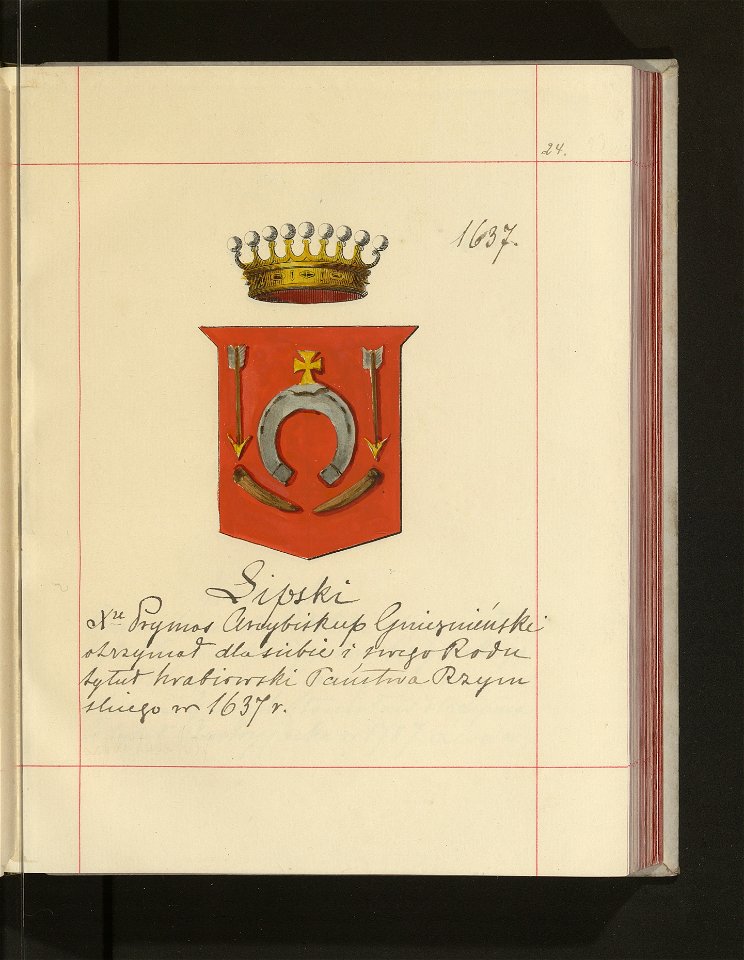 24.
1637.
Lipski
Prymas Arcybiskup Gnieźnieński
otrzymał dla siebie i swego Rodu
tytuł hrabiowski Państwa Rzym
skiego w 1637 r.